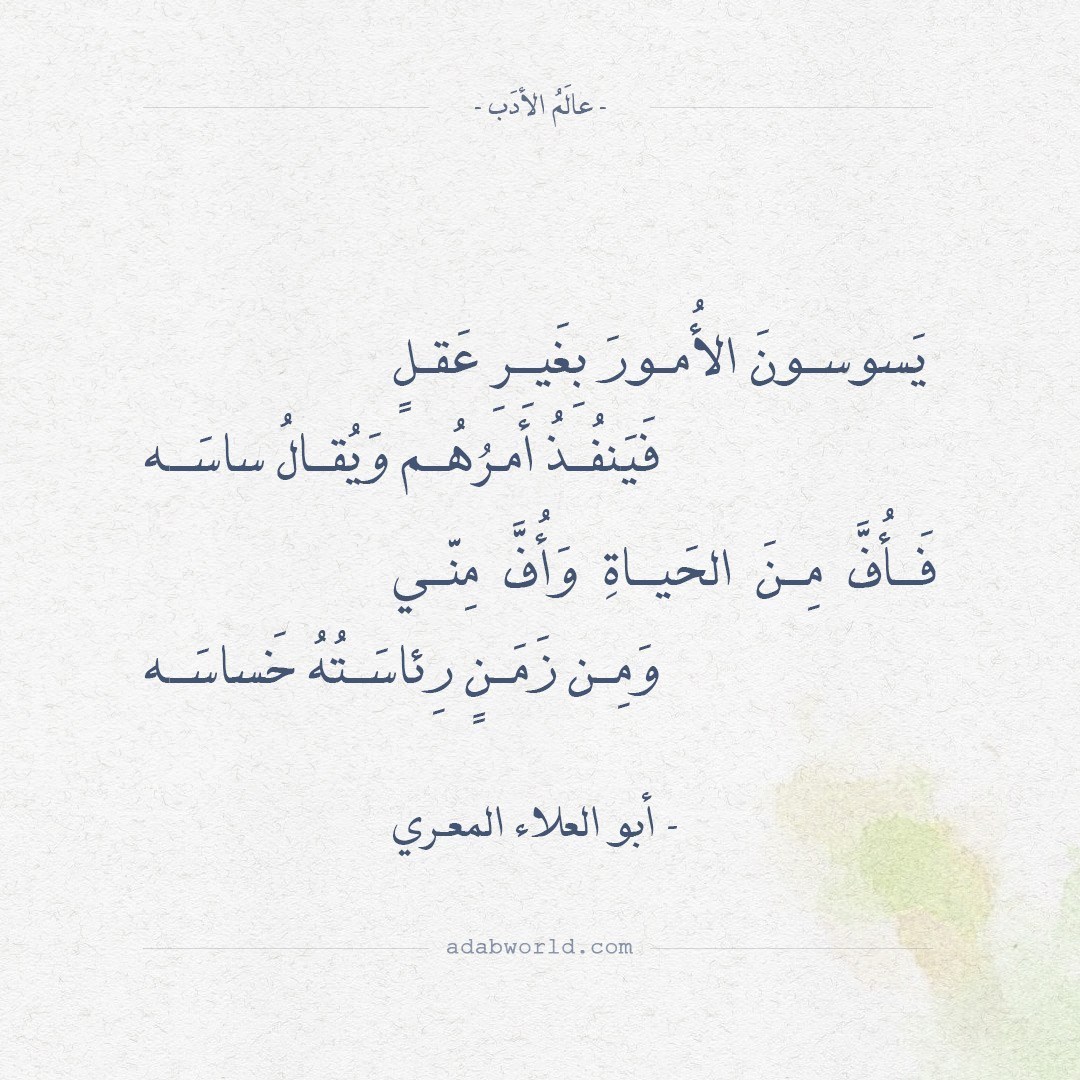 - عالَمُ الأدَب -
يَسوسونَ الأُمورَ بِغَيرِ عَقلٍ
فَيَنفُذُ أَمرُهُم وَيُقالُ ساسَه
فَأُفَّ مِنَ الحَياةِ وَأُفَّ مِنّي
وَمِن زَمَنٍ رِئاسَتُهُ خَساسَه
- أبو العلاء المعري
adabworld.com